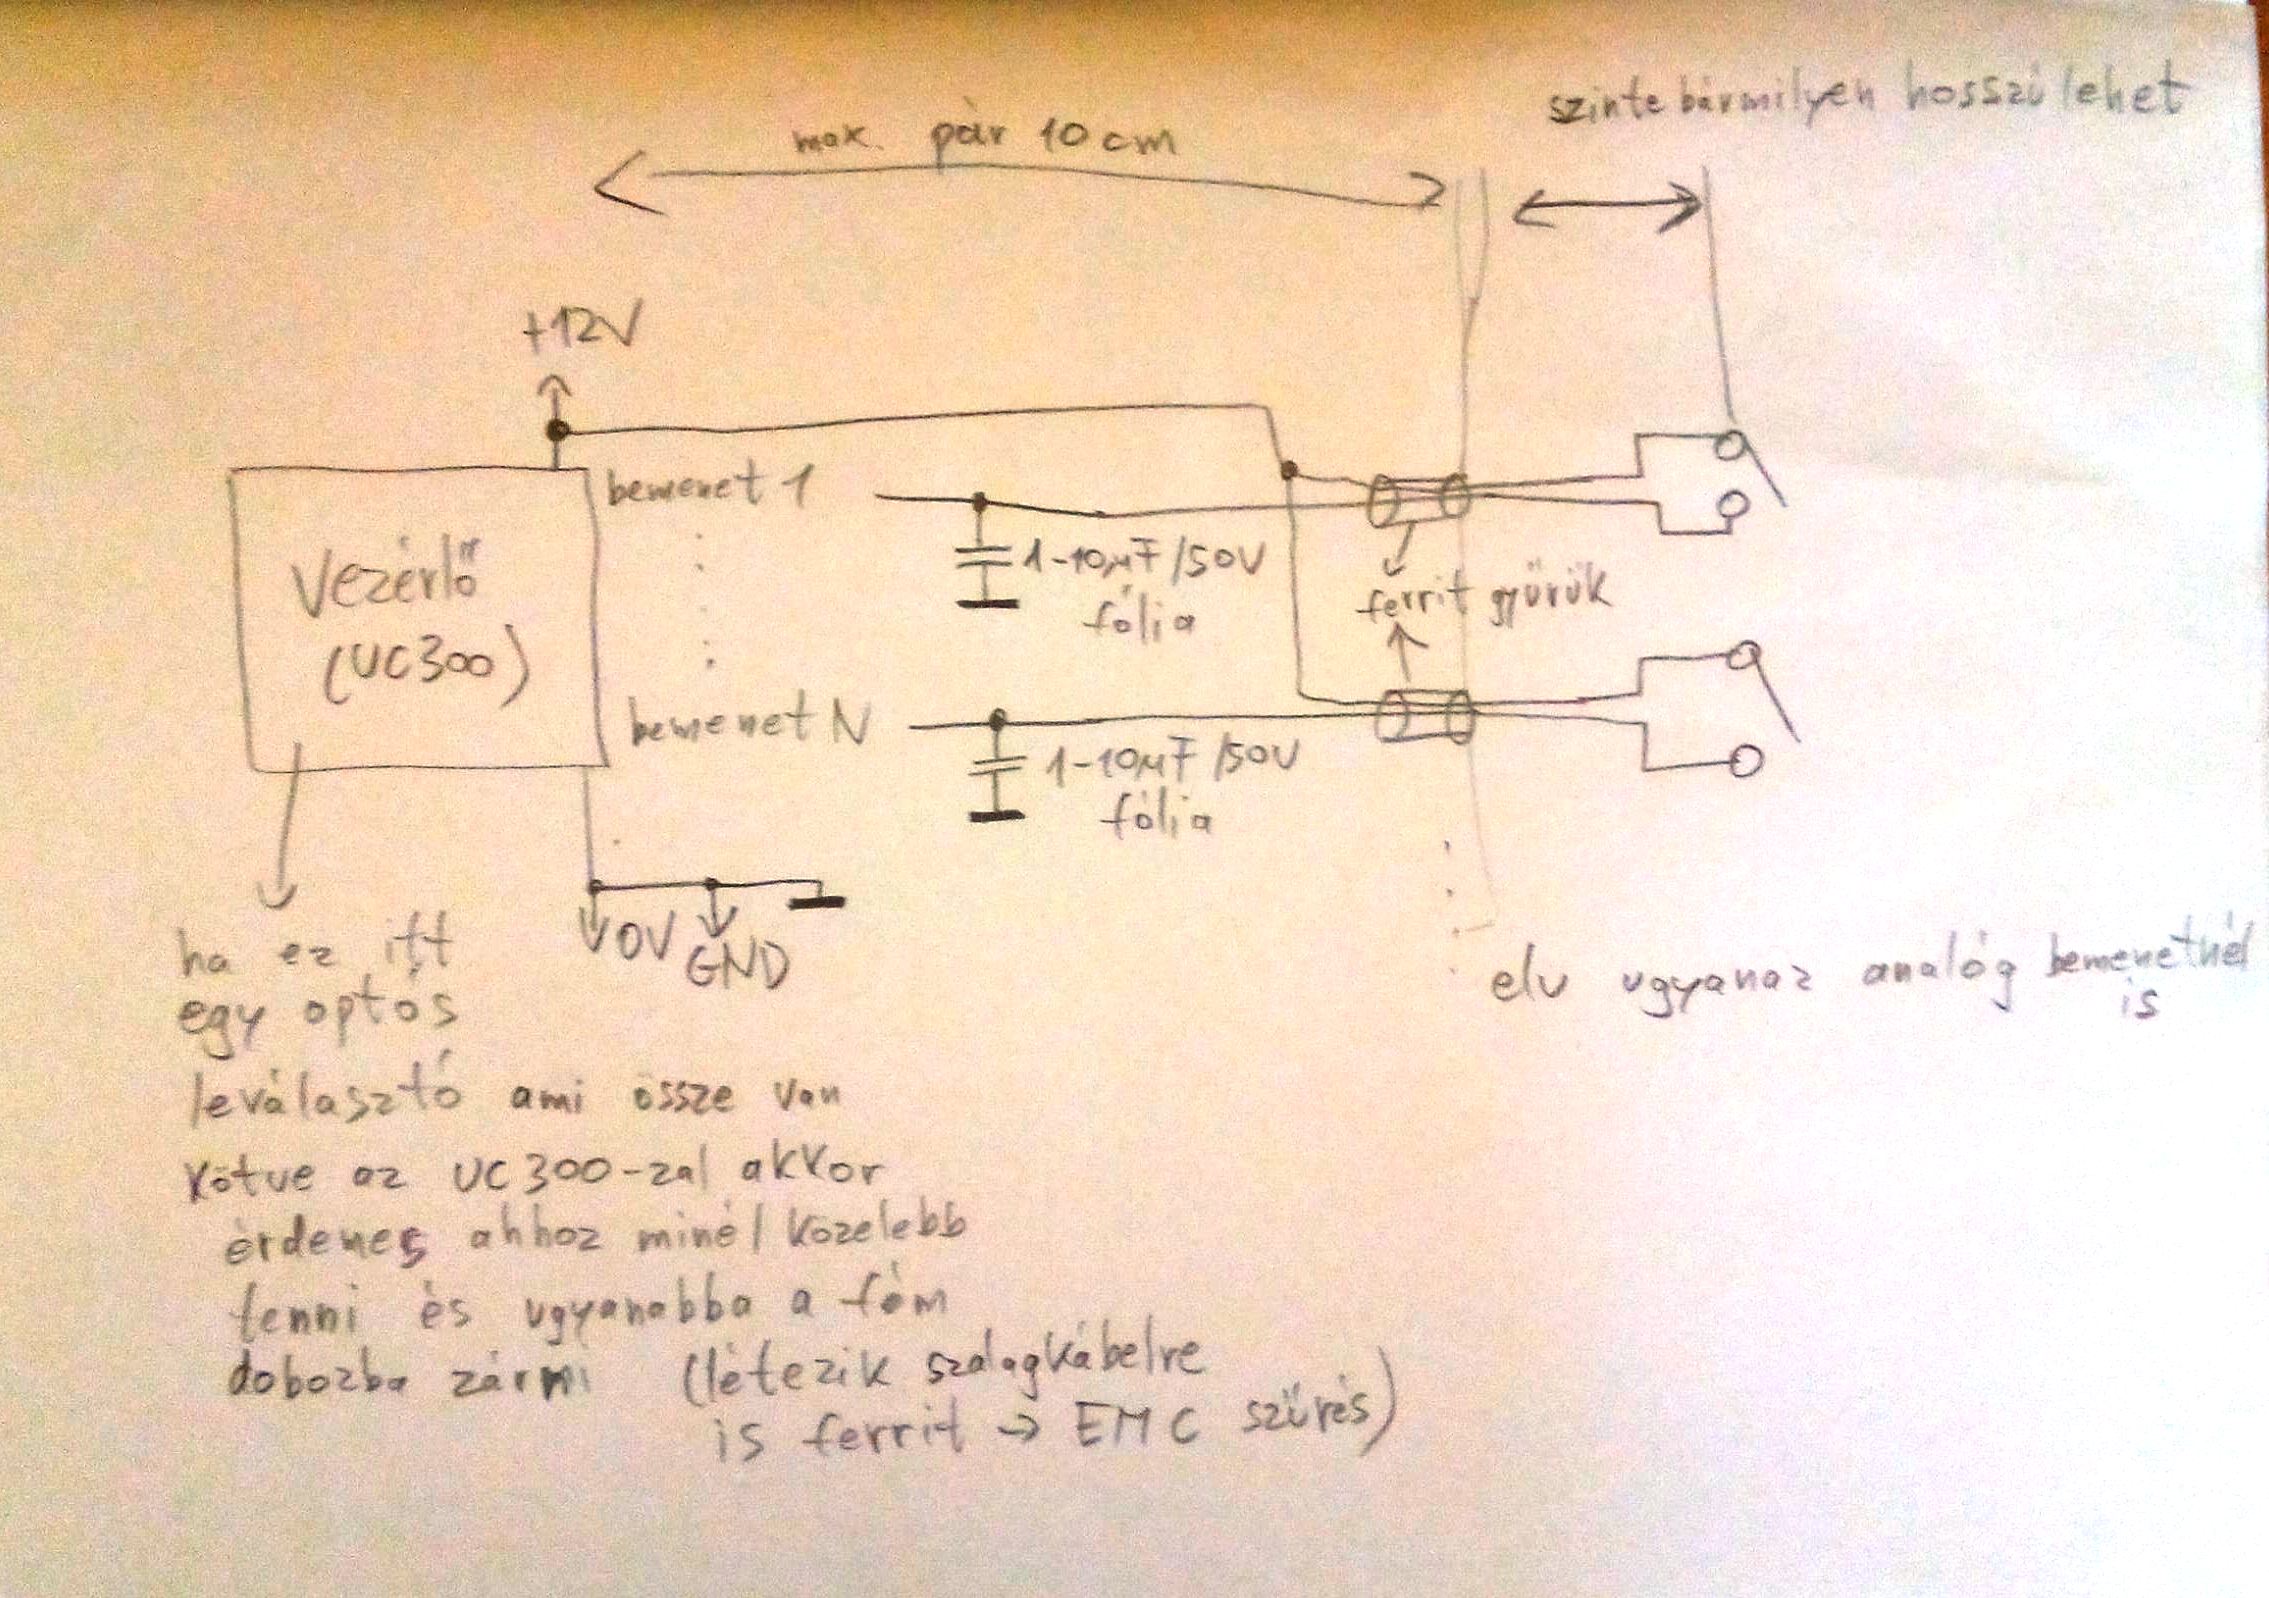 szinte bármilyen hosszú lehet
max. pár 10 cm
+12V
bemenet 1
1-10µF/50V
fólia
Vezérlő
(UC300)
ferrit gyűrűk
bemenet N
1-10µF/50V
fólia
0V
GND
elv ugyanaz analóg bemenetnél
is
ha ez itt
egy optós
leválasztó ami össze van
kötve az UC300-zal akkor
érdemes ahhoz minél közelebb
tenni és ugyanabba a fém
dobozba zárni (létezik szalagkábelre
is ferrit → EMC szűrés)